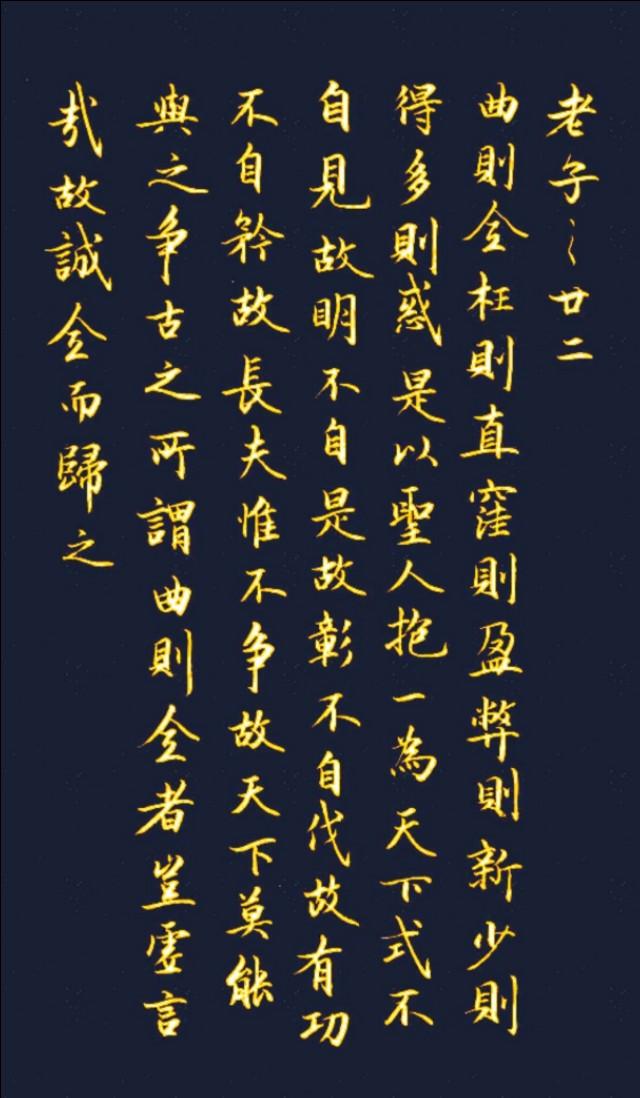 老子〻廿二
曲則全枉則直窪則盈弊則新少則
得多則惑是以聖人抱一為天下式不
自見故明不自是故彰不自伐故有功
不自矜故長夫惟不爭故天下莫能
與之爭古之所謂曲則全者豈虛言
哉故誠全而歸之